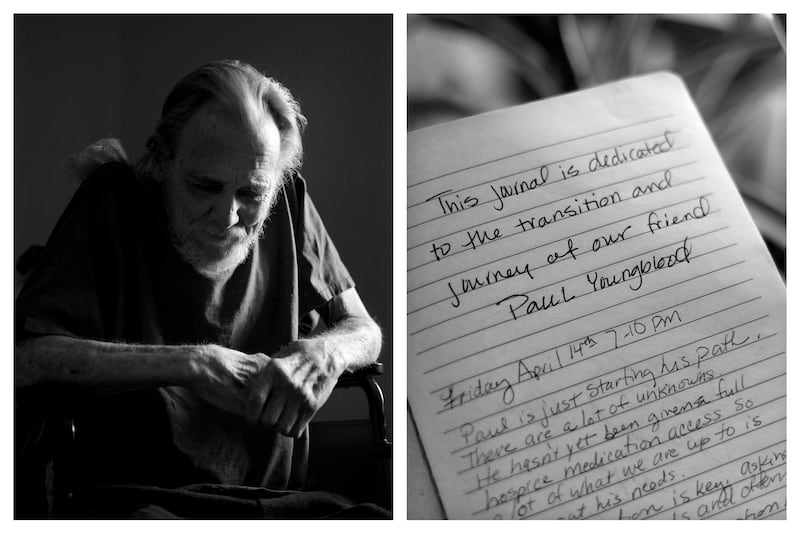 This Jornal is dedicated
to the transition and
journey of our friend
Paul Youngblood
Friday April 14th 7-10 pm
Paul is just starting his path.
There are a lot of unknowns.
He hasnt yet been given a full
hospice medication access so
a lot of what we are up to is
out his needs.
is key, asking
and offer